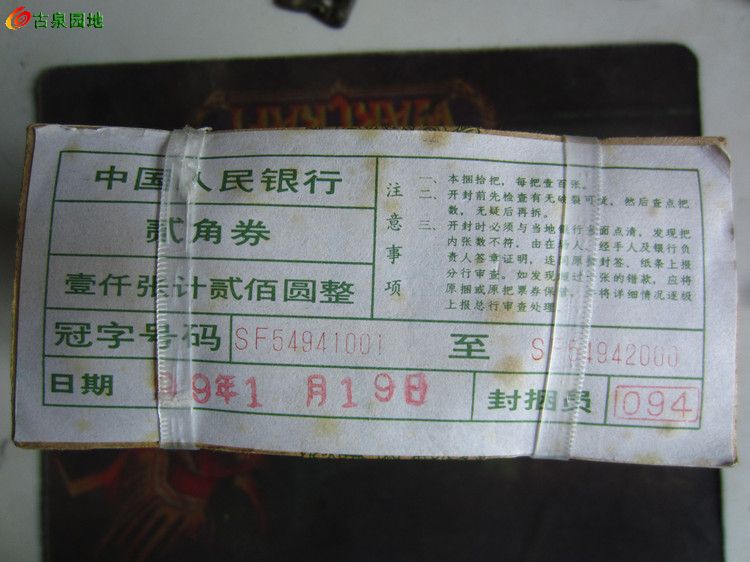 古泉园地
WARCRAFT
中国人民银行
贰角券
壹仟张计贰佰圆整
注意事项
一、本捆拾把，每把壹百张。
二、开封前先检查有无破裂可疑，然后查点把
数，无疑后再拆。
三、开封时必须与当地银行 面点清，发现把
内张数不符，由在场人、经手人及银行负
责人签章证明，连同原捆封签、纸条上报
分行审查。如发现 过 张的错款，应将
原捆或原把票券保管， 将详细情况逐级
上报总行审查处理。
冠字号码 SF54941001 至 SF54942000
日期 99年1月19日 封捆员 094